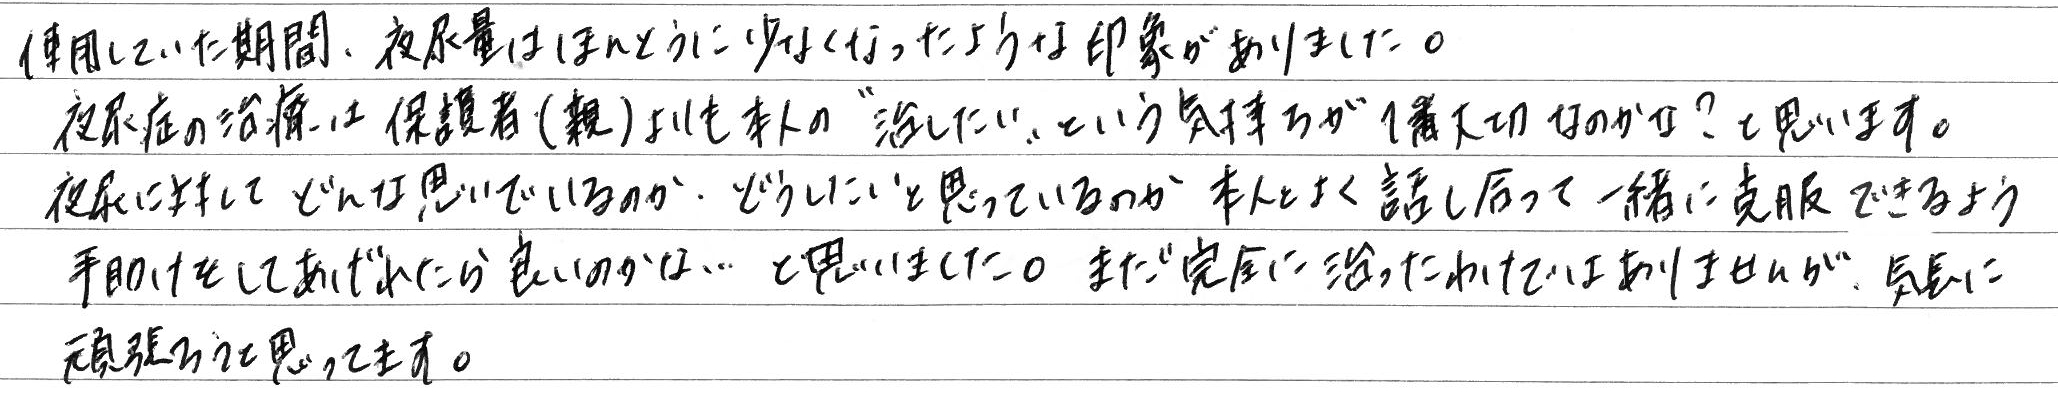 使用していた期間、夜尿量はほんとうに少なくなったような印象がありました。
夜尿症の治療は保護者(親)よりも本人の"治したい"という気持ちが1番大切なのかな?と思います。
夜尿に対してどんな思いでいるのか、どうしたいと思っているのか本人とよく話し合って一緒に克服できるよう
手助けをしてあげれたら良いのかな…と思いました。まだ完全に治ったわけではありませんが、気長に
頑張ろうと思ってます。